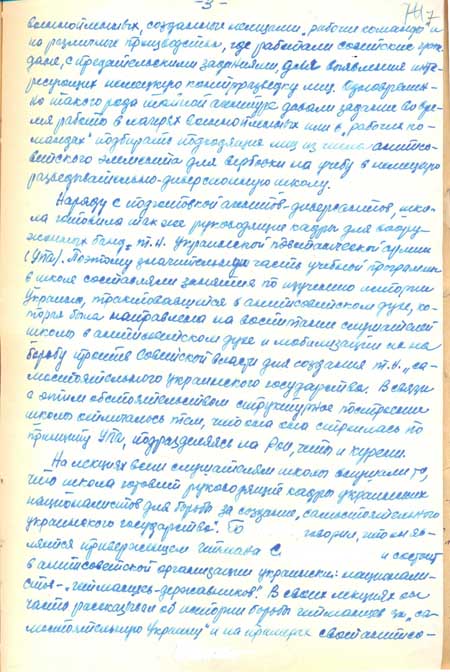 - 3 -
747
военнопленных, созданные немцами "рабочие команды" и
на различные производства, где работали советские граж-
дане, с предательскими заданиями, для выявления инте-
ресующих немецкую контрразведку лиц. Одновремен-
но такого рода агентура давали задание во вре-
мя работы в лагерях военнопленных или в "рабочих ко-
мандах" подбирать подходящих лиц из числа антисо-
ветского элемента для вербовки на учебу в немецкую
разведывательно-диверсионную школу.
Наряду с подготовкой агентов-диверсантов, шко-
ла готовила также руководящие кадры для воору-
женных банд, т.н. Украинской повстанческой армии
(УПА). Поэтому значительную часть учебной программы
в школе составляли занятия по изучению истории
Украины, трактовавшейся в антисоветском духе, ко-
торая была направлена на воспитание слушателей
школы в антисоветском духе и мобилизации их на
борьбу против Советской власти для создания т.н. "са-
мостоятельного украинского государства". В связи
с этим обстоятельством структурное построение
школы отличалось тем, что она строилась по
принципу УПА, подразделяясь на Рои, четы и курени.
На лекциях всем слушателям школы внушали то,
что школа готовит руководящие кадры украинских
националистов для борьбы за создание "самостоятельного
украинского государства". Бо говорил, что он яв-
ляется приверженцем гетмана С и состоит
в антисоветской организации украинских националис-
тов - "гетманцев-державников". В своих лекциях он
часто рассказывал об истории борьбы гетманцев за "са-
мостоятельную Украину" и на примерах своей антисо-